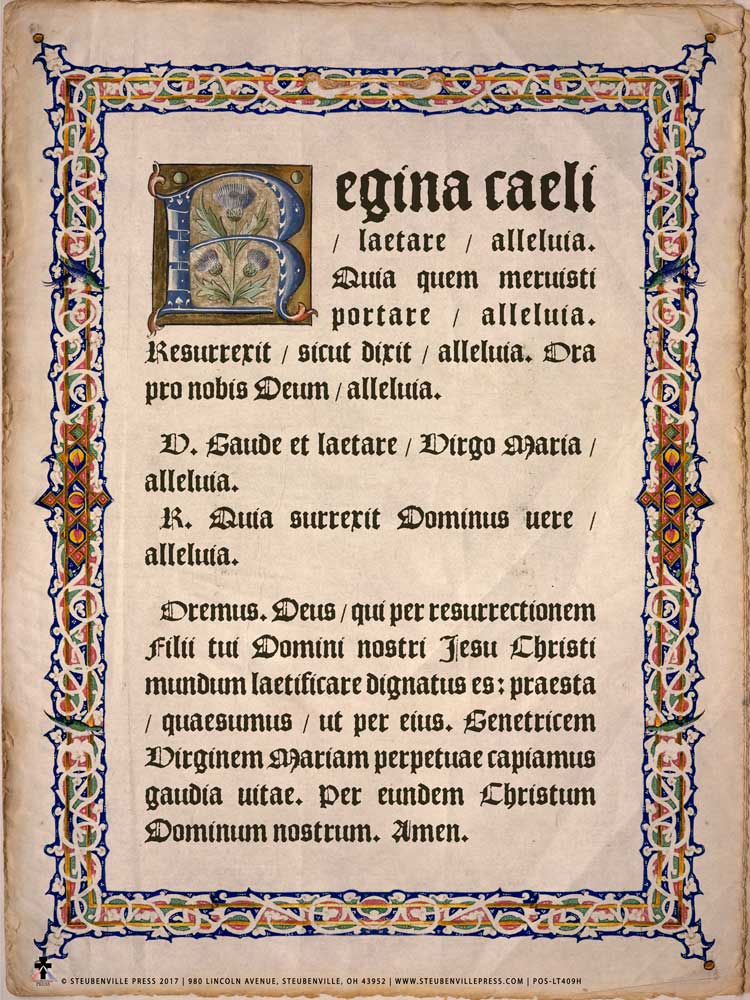 Regina caeli
/ laetare / alleluia.
Quia quem meruisti
portare / alleluia.
Resurrexit / sicut dixit / alleluia. Ora
pro nobis Deum / alleluia.
V. Gaude et laetare / Virgo Maria /
alleluia.
R. Quia surrexit Dominus uere /
alleluia.
Oremus. Deus / qui per resurrectionem
Filii tui Domini nostri Jesu Christi
mundum laetificare dignatus es: praesta
/ quaesumus / ut per eius. Genetricem
Virginem Mariam perpetuae capiamus
gaudia uitae. Per eundem Christum
Dominum nostrum. Amen.
© STEUBENVILLE PRESS 2017 | 980 LINCOLN AVENUE, STEUBENVILLE, OH 43952 | WWW.STEUBENVILLEPRESS.COM | POS-LT409H